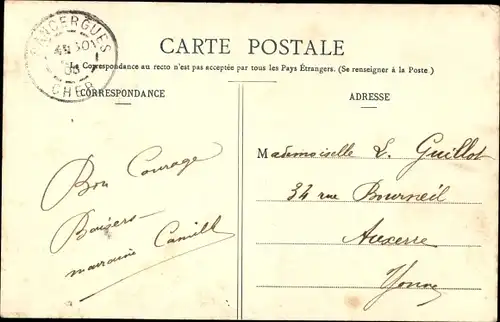 SANCERGUES
CHER
CARTE POSTALE
La Correspondance au recto n'est pas acceptée par tous les Pays Étrangers. (Se renseigner à la Poste.)
CORRESPONDANCE
ADRESSE
Mademoiselle L. Guillot
34 rue Bourneil
Auxerre
Yonne
Bon Courage
Baisers
marraine Camille